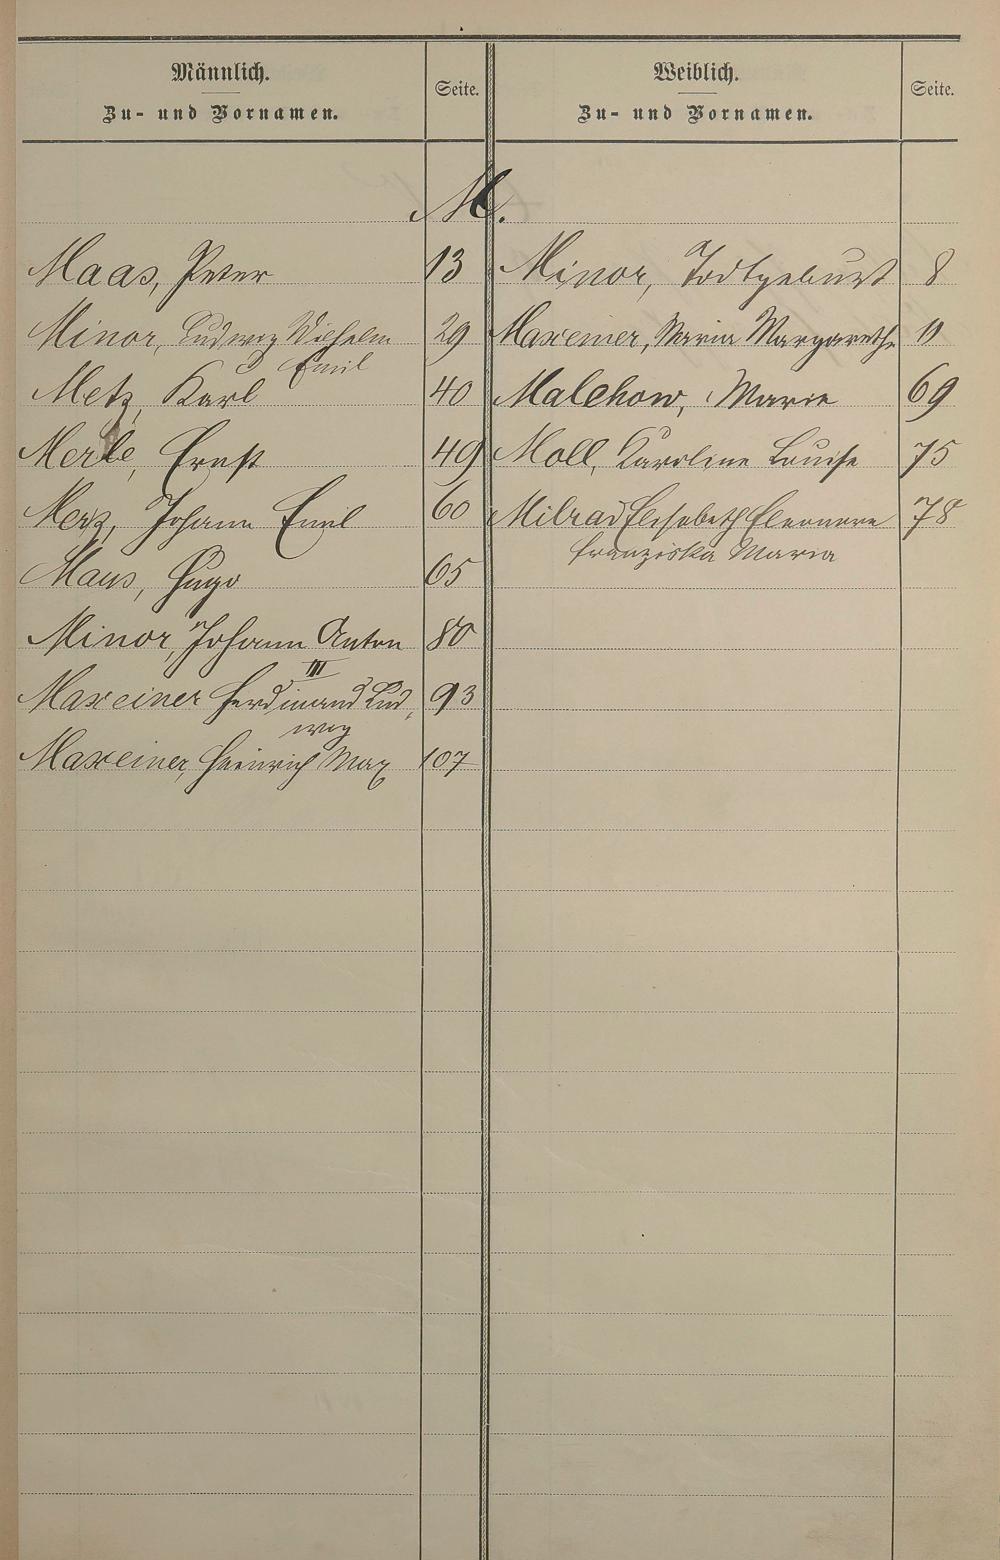 Männlich. Weiblich.
Zu- und Vornamen. Seite. Zu- und Vornamen. Seite.
M.
Maas, Peter 13 Minor, Todtgeburt 8
Minor, Ludwig Wilhelm 29 Maxeiner, Maria Margarethe 11
Emil
Metz, Karl 40 Malchow, Marie 69
Merle, Ernst 49 Moll, Karoline Louise 75
Merz, Johann Emil 60 Milrad Elisabeth Eleonore 78
Franziska Maria
Maus, Hugo 65
Minor, Johann Anton 80
III
Maxeiner Ferdinand Lud, 93
wig
Maxeiner, Heinrich Max 107